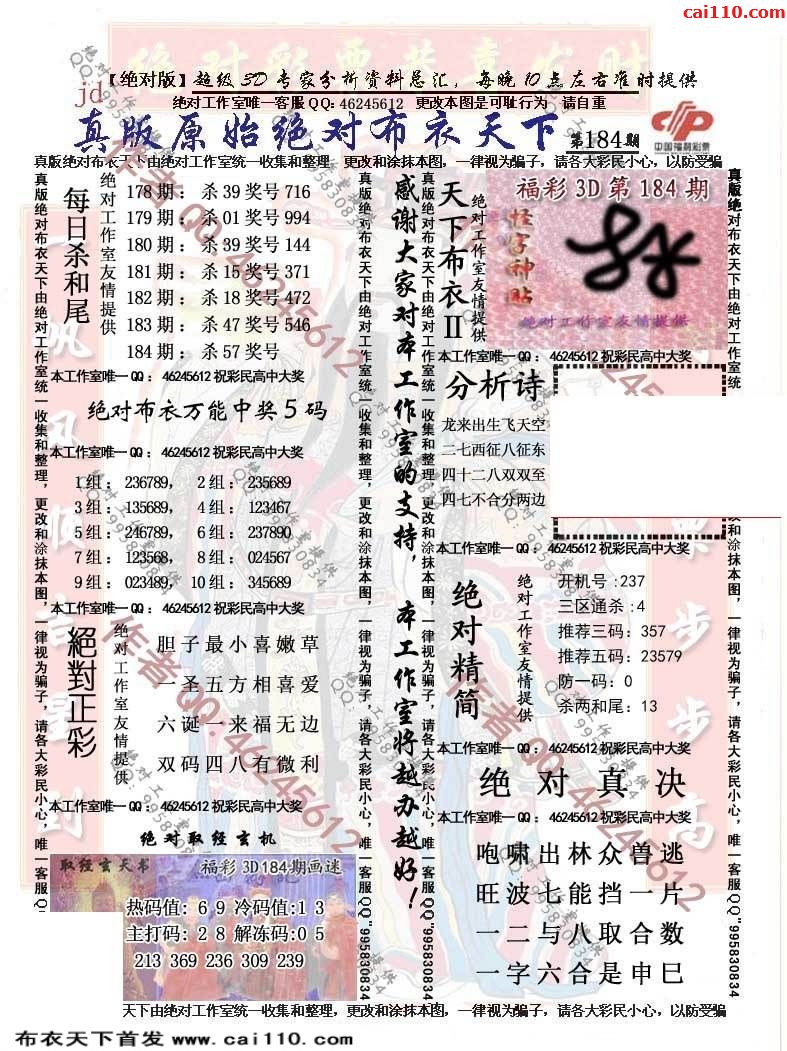 cai110.com
【绝对版】超级3D专家分析资料总汇，每晚10点左右准时提供
jd
绝对工作室唯一客服QQ: 46245612 更改本图是可耻行为 请自重
真版原始绝对布衣天下 第184期
中国福利彩票
真版绝对布衣天下由绝对工作室统一收集和整理，更改和涂抹本图，一律视为骗子，请各大彩民小心，以防受骗
每日杀和尾
绝对工作室友情提供
178期：杀39奖号716
179期：杀01奖号994
180期：杀39奖号144
181期：杀15奖号371
182期：杀18奖号472
183期：杀47奖号546
184期：杀57奖号
本工作室唯一QQ：46245612祝彩民高中大奖
绝对布衣万能中奖5码
本工作室唯一QQ：46245612祝彩民高中大奖
1组：236789， 2组：235689
3组：135689， 4组：123467
5组：246789， 6组：237890
7组：123568， 8组：024567
9组：023489， 10组：345689
本工作室唯一QQ：46245612祝彩民高中大奖
絕對正彩
绝对工作室友情提供
胆子最小喜嫩草
一圣五方相喜爱
六诞一来福无边
双码四八有微利
本工作室唯一QQ：46245612祝彩民高中大奖
绝对取经玄机
取经玄天书 福彩3D184期画迷
热码值：6 9 冷码值:1 3
主打码：2 8 解冻码:0 5
213 369 236 309 239
感谢大家对本工作室的支持，本工作室将越办越好！
天下布衣II
绝对工作室友情提供
福彩3D第184期
怪字神贴
绝对工作室友情提供
本工作室唯一QQ：46245612祝彩民高中大奖
分析诗
龙来出生飞天空
二七西征八征东
四十二八双双至
四七不合分两边
本工作室唯一QQ：46245612祝彩民高中大奖
绝对精简
绝对工作室友情提供
开机号:237
三区通杀:4
推荐三码:357
推荐五码:23579
防一码:0
杀两和尾:13
本工作室唯一QQ：46245612祝彩民高中大奖
绝对真决
本工作室唯一QQ：46245612祝彩民高中大奖
咆啸出林众兽逃
旺波七能挡一片
一二与八取合数
一字六合是申巳
真版绝对布衣天下由绝对工作室统一收集和整理，更改和涂抹本图，一律视为骗子，请各大彩民小心，唯一客服QQ"995830834
天下由绝对工作室统一收集和整理，更改和涂抹本图，一律视为骗子，请各大彩民小心，以防受骗
布衣天下首发 www.cai110.com
作者QQ:46245612
绝对工作室提供
QQ:995830834